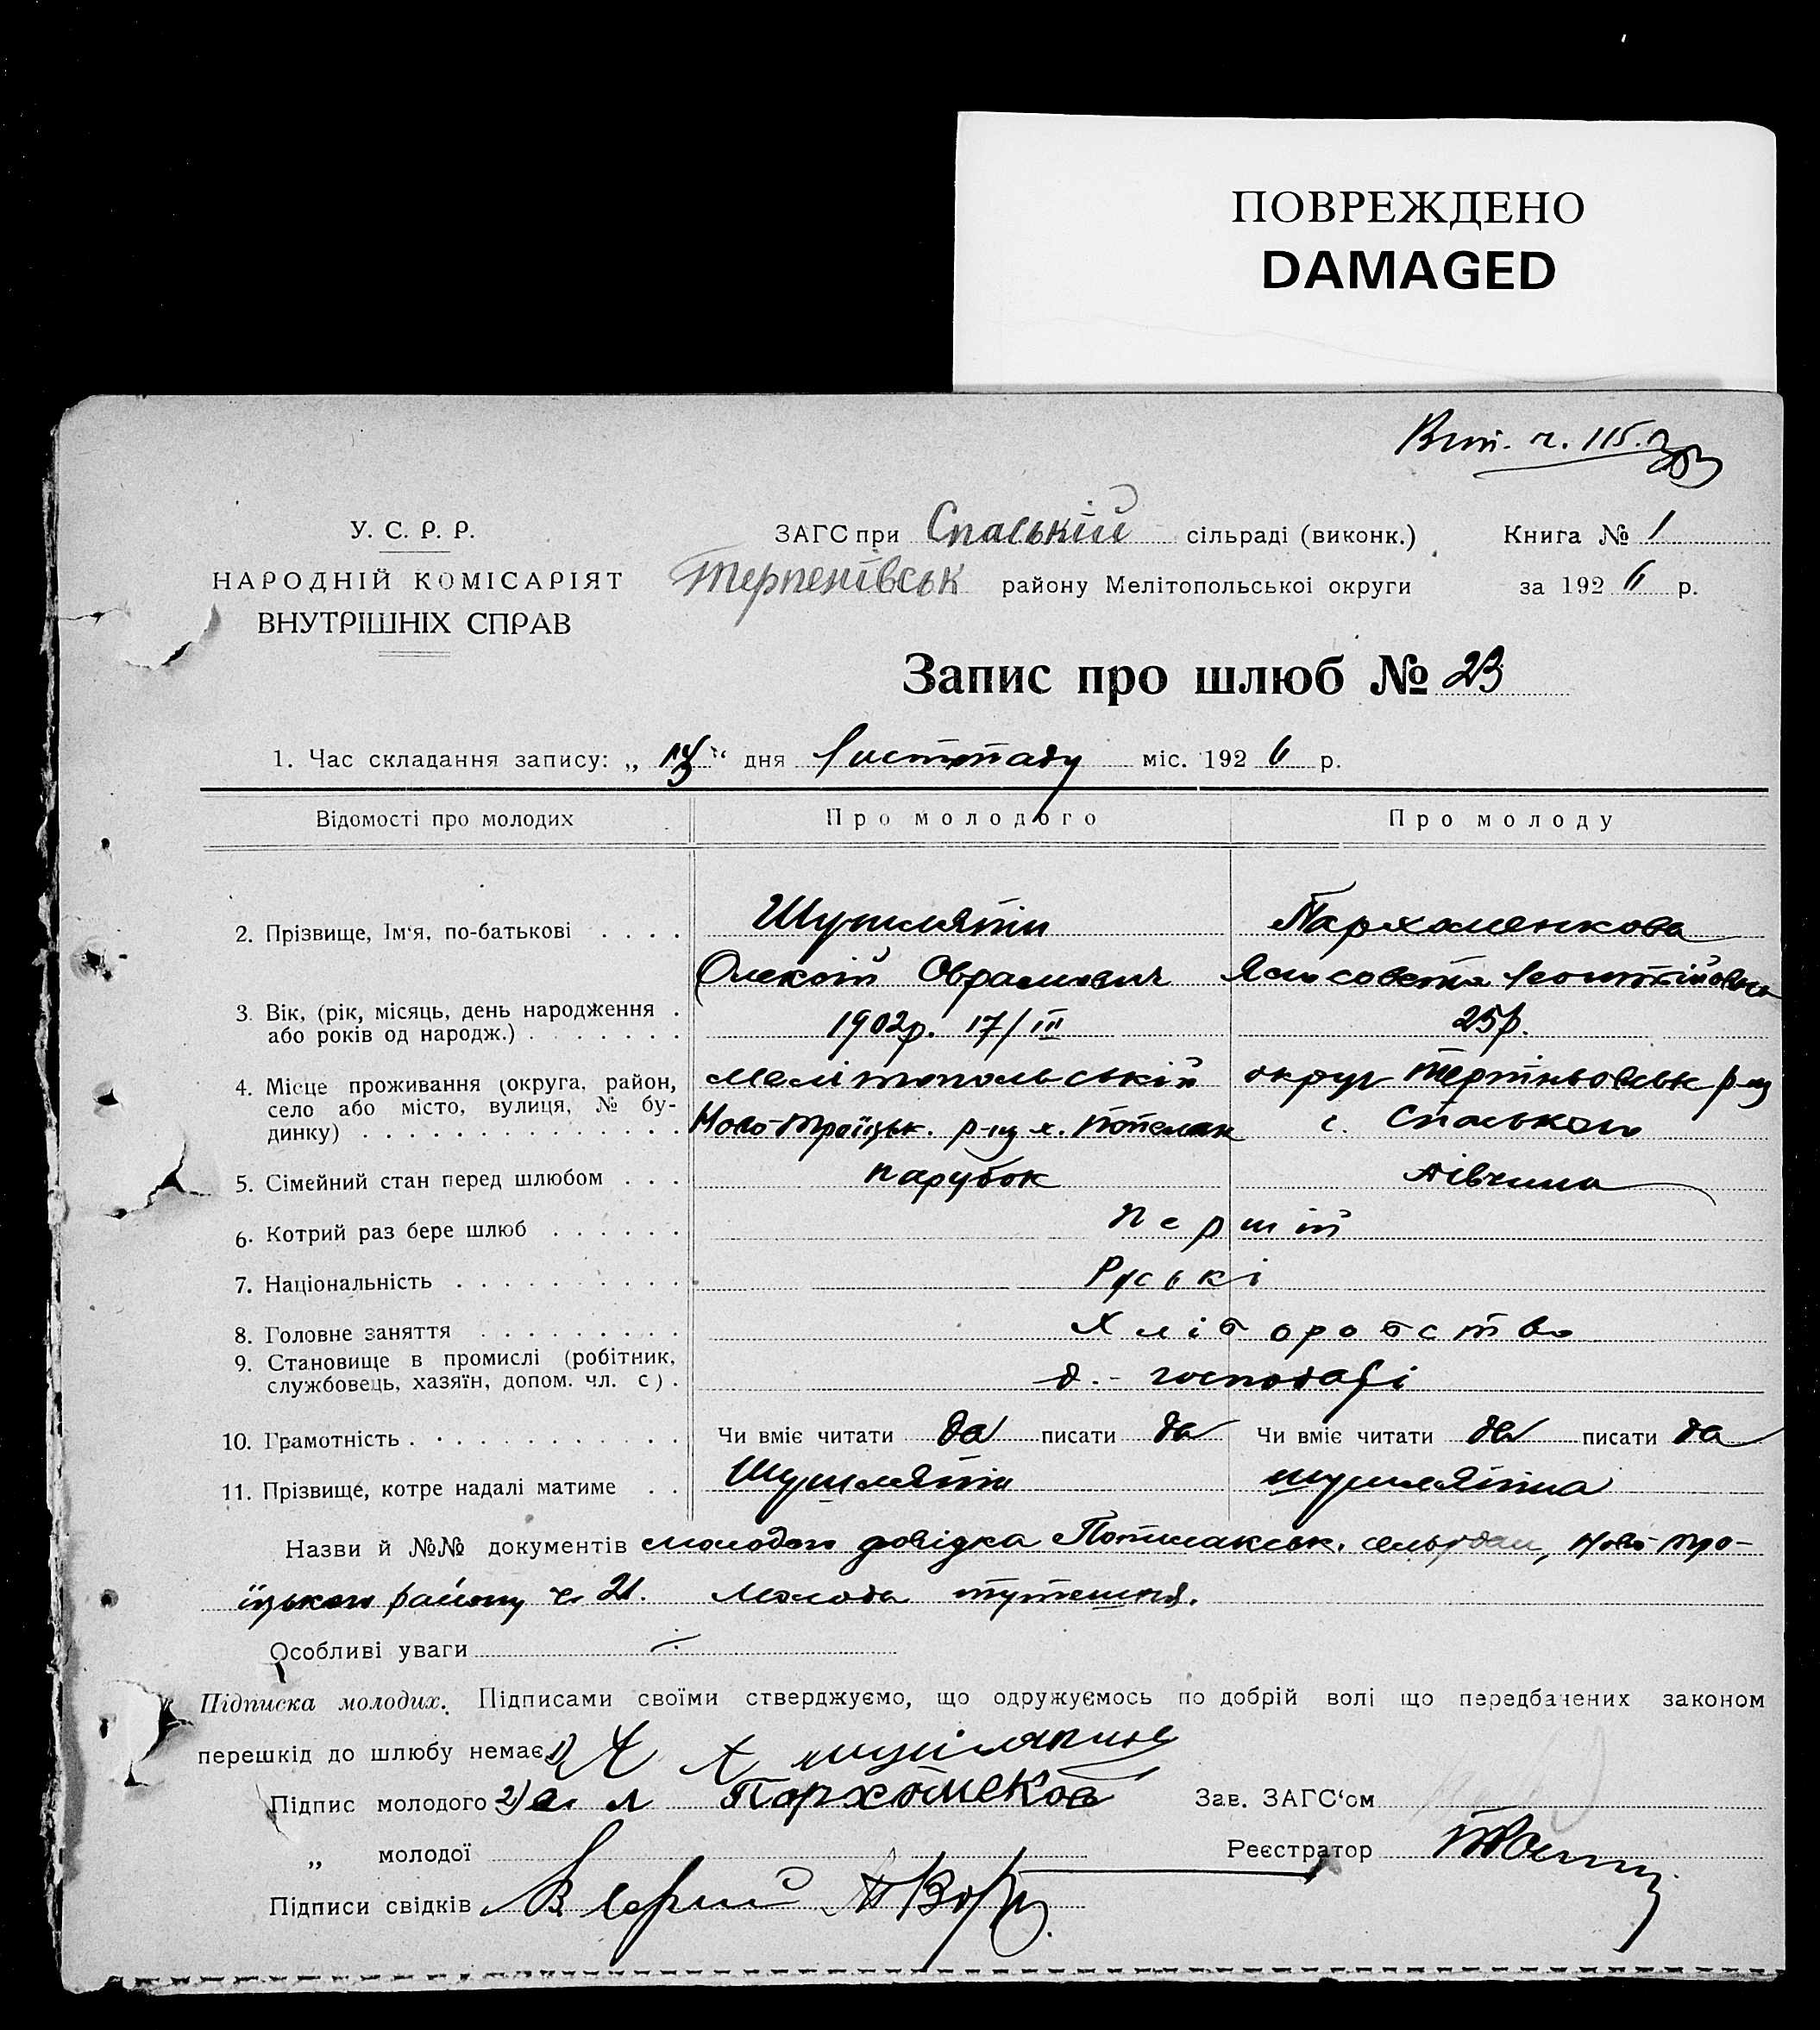 ПОВРЕЖДЕНО
DAMAGED
Вит. ч. 115.
У. С. Р. Р.
НАРОДНІЙ КОМІСАРІЯТ
ВНУТРІШНІХ СПРАВ
ЗАГС при Спаській сільраді (виконк.)
Терпенівськ району Мелітопольської округи
Книга № 1
за 1926 р.
Запис про шлюб № 23
1. Час складання запису: „ “ дня Листопаду міс. 1926 р.
Відомості про молодих Про молодого Про молоду
2. Прізвище, Ім‘я, по-батькові . . . . Шушлятін Пархоменкова
Олексій Оврамович Леонтіївна
3. Вік, (рік, місяць, день народження . 1902р. 17/III 25р.
або років од народж.) . . . . . . .
4. Місце проживання (округа, район, Мелітопольській округ р-ну
село або місто, вулиця, № бу- Ново-Троїцьк. р-ну х. Попелак с. Спаського
динку) . . . . . . . . . . . . . .
5. Сімейний стан перед шлюбом . . . парубок дівчина
6. Котрий раз бере шлюб . . . . . . першій
7. Національність . . . . . . . . . . Руські
8. Головне заняття . . . . . . . . . Хліборобство
9. Становище в промислі (робітник,
службовець, хазяїн, допом. чл. с) . д.- господарі
10. Грамотність . . . . . . . . . . . . Чи вміє читати да писати да Чи вміє читати да писати да
11. Прізвище, котре надалі матиме . . Шушлятін шушлятіна
Назви й №№ документів молодого довідка Ново-Тро-
їцького району ч. 21. Молода тутешня.
Особливі уваги ÷
Підписка молодих. Підписами своїми стверджуємо, що одружуємось по добрій волі що передбачених законом
перешкід до шлюбу немає 1)
Підпис молодого 2) Зав. ЗАГС‘ом
„ молодої Реєстратор
Підписи свідків